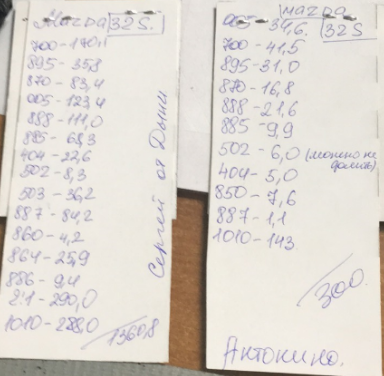 Mazda 32S.
700-170,1
895-35,8
870-83,4
005-123,4
888-111,0
885-68,3
404-22,6
502-8,3
503-36,2
887-84,2
860-4,2
864-25,9
886-9,4
290,0
1010-288,0
1360,8
Сергей от Дыни
mazda
32S
005-34,6.
700-41,5
895-31,0
870-16,8
888-21,6
885-9,9
502-6,0 (можно не
404-5,0
850-7,6
887-1,1
1010-143
300.
Антонино.